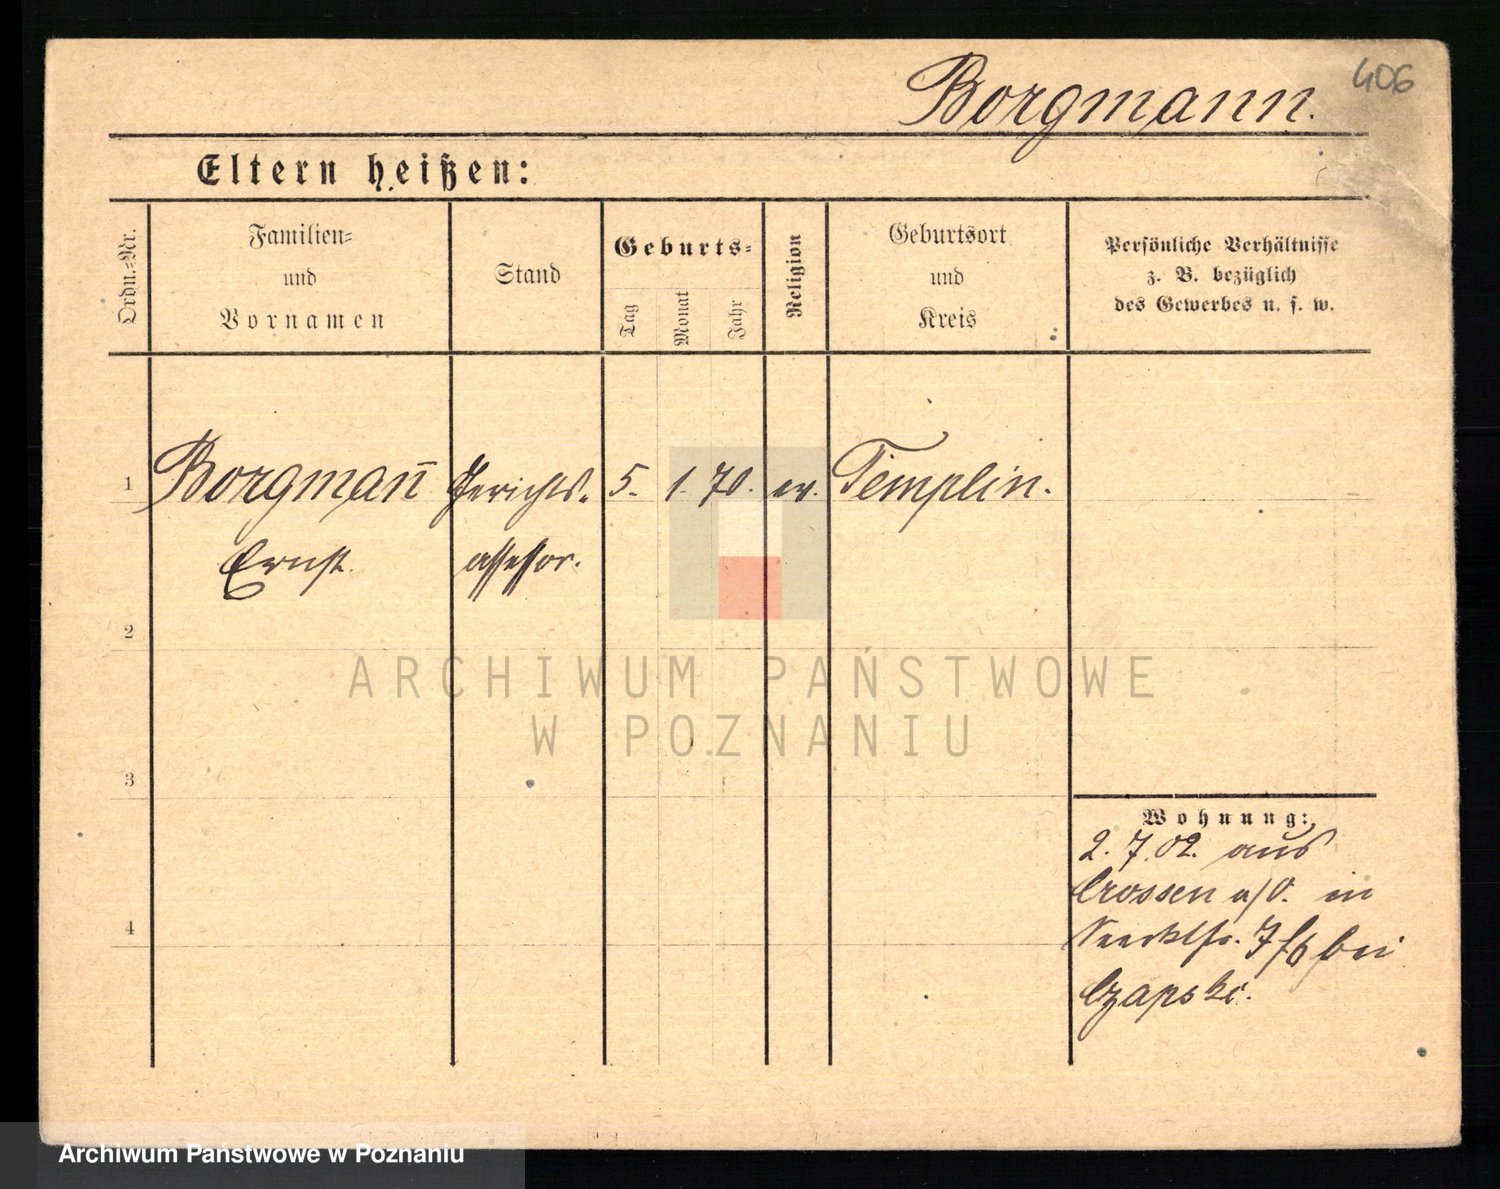 406
Borgmann.
Eltern heißen:
Ordn.-Nr.
Familien-
und
Vornamen
Stand
Geburts-
Tag
Monat
Jahr
Religion
Geburtsort
und
Kreis
Persönliche Verhältnisse
z. B. bezüglich
des Gewerbes u. s. w.
1 Borgmann̄ Gerichts- 5. 1. 70. ev. Templin.
Ernst. assessor.
2
3
4
Wohnung:
2. 7. 02. aus
Crossen a/O. in
7 bei
Czapski.
ARCHIWUM PAŃSTWOWE
W POZNANIU
Archiwum Państwowe w Poznaniu